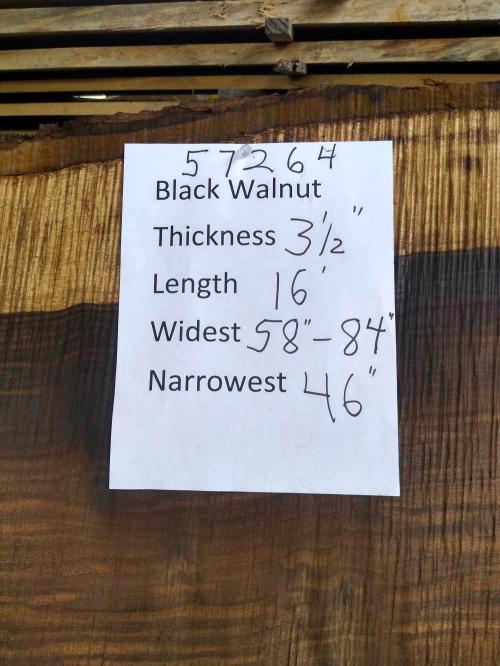 57264
Black Walnut
Thickness 3 1/2"
Length 16'
Widest 58"-84"
Narrowest 46"